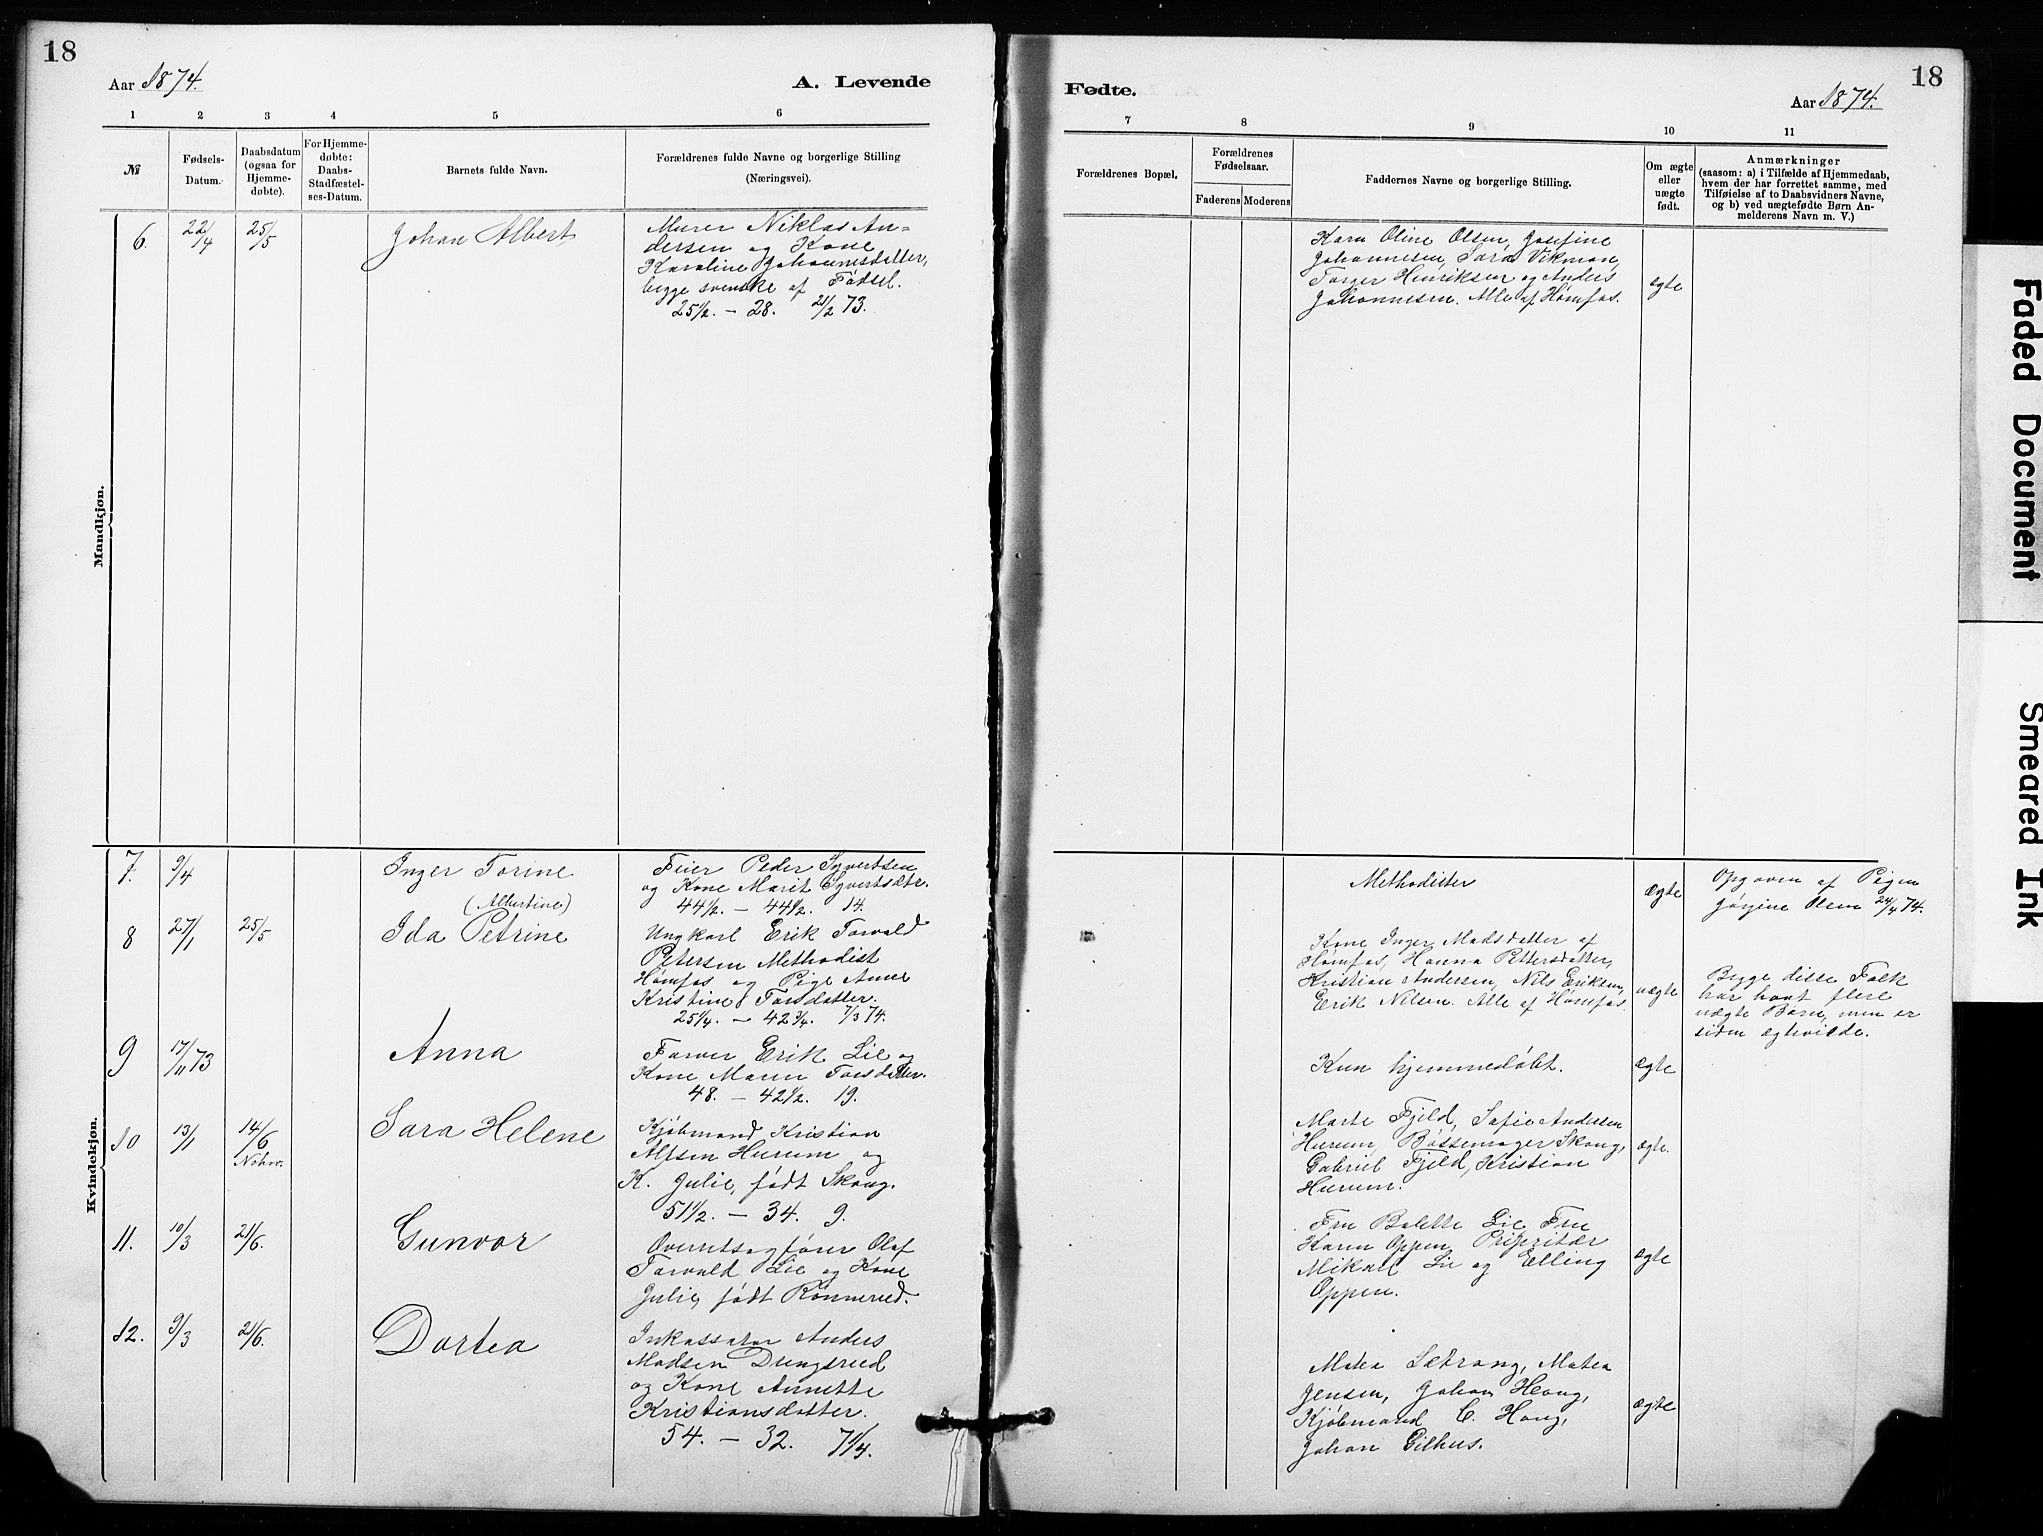 18
Aar 1874.
A. Levende
1 2 3 4 5 6
№
Fødsels-
Datum.
Daabsdatum
(ogsaa for
Hjemme-
døbte).
For Hjemme-
døbte:
Daabs-
Stadfæstel-
ses-Datum.
Barnets fulde Navn.
Forældrenes fulde Navne og borgerlige Stilling
(Næringsvei).
Mandkjøn.
6. 22/4 25/5 Johan Albert
Murer Niklas An-
dersen og Kone
Karoline Johannesdatter,
begge svenske af Fødsel.
25½. – 28. 21/2 73.
Kvindekjøn.
7. 9/4 Inger Torine
Feier Peder Syvertsen
og Kone Marit Syvertsdtr.
44½. – 44½. 14.
8 27/1 25/5 (Albertine)
Ida Petrine
Ungkarl Erik Torvald
Petersen Methodist
Hømfos og Pige Anne
Kristine Torsdatter.
25¼. – 42¾. 7/3 74.
9 17/11 73 Anna
Farver Erik Lie og
Kone Maren Torsdatter.
48. – 42½. 19.
10 13/1 14/6 Sara Helene
Kjøbmand Kristian
Alfsen Hurum og
K. Julie, født Skoug.
51½. – 34. 9.
11. 10/3 21/6. Gunvor
Overretssagfører Olaf
Torvald Lie og Kone
Julie, født Rønnerud.
12. 9/3 21/6. Dortea
Inkassator Anders
Madsen Dungsrud
og Kone Annette
Kristiansdatter.
54. – 32. 7¼.
Fødte.
18
Aar 1874.
7 8 9 10 11
Forældrenes Bopæl.
Forældrenes
Fødselsaar.
Faderens Moderens
Faddernes Navne og borgerlige Stilling.
Om ægte
eller
uægte
født.
Anmærkninger
(saasom: a) i Tilfælde af Hjemmedaab,
hvem der har forrettet samme, med
Tilføielse af to Daabsvidners Navne,
og b) ved uægtefødte Børn An-
melderens Navn m. V.)
Karn Oline Olsen, Josefine
Johannesen, Sara Vikman,
Torger Henriksen og Anders
Johannesen. Alle af Hømfos.
ægte
Methodister
Ægte
Opgaven af Pigen
Jørgine Olsen 24/4 74.
Kone Inger Madsdatter af
Hømfos, Hanna Pettersdatter,
Kristian Andersen, Nils Eriksen,
Erik Nilsen. Alle af Hømfos.
uægte
Begge disse Folk
har havt flere
uægte Børn, men er
siden ægteviede.
Kun hjemmedøbt.
Ægte
Marte Fjeld, Sofie Andersen
Hurum, Bøssemager Skoug,
Gabriel Fjeld, Kristian
Hurum.
ægte.
Fru Bolette Lie Fru
Karen Oppen, Proprietær
Mikael Lie og Elling
Oppen.
Ægte
Matea Sætrang, Matea
Jensen, Johan Houg,
Kjøbmand C. Houg,
Johan Gilhus.
Ægte
Faded Document
Smeared Ink